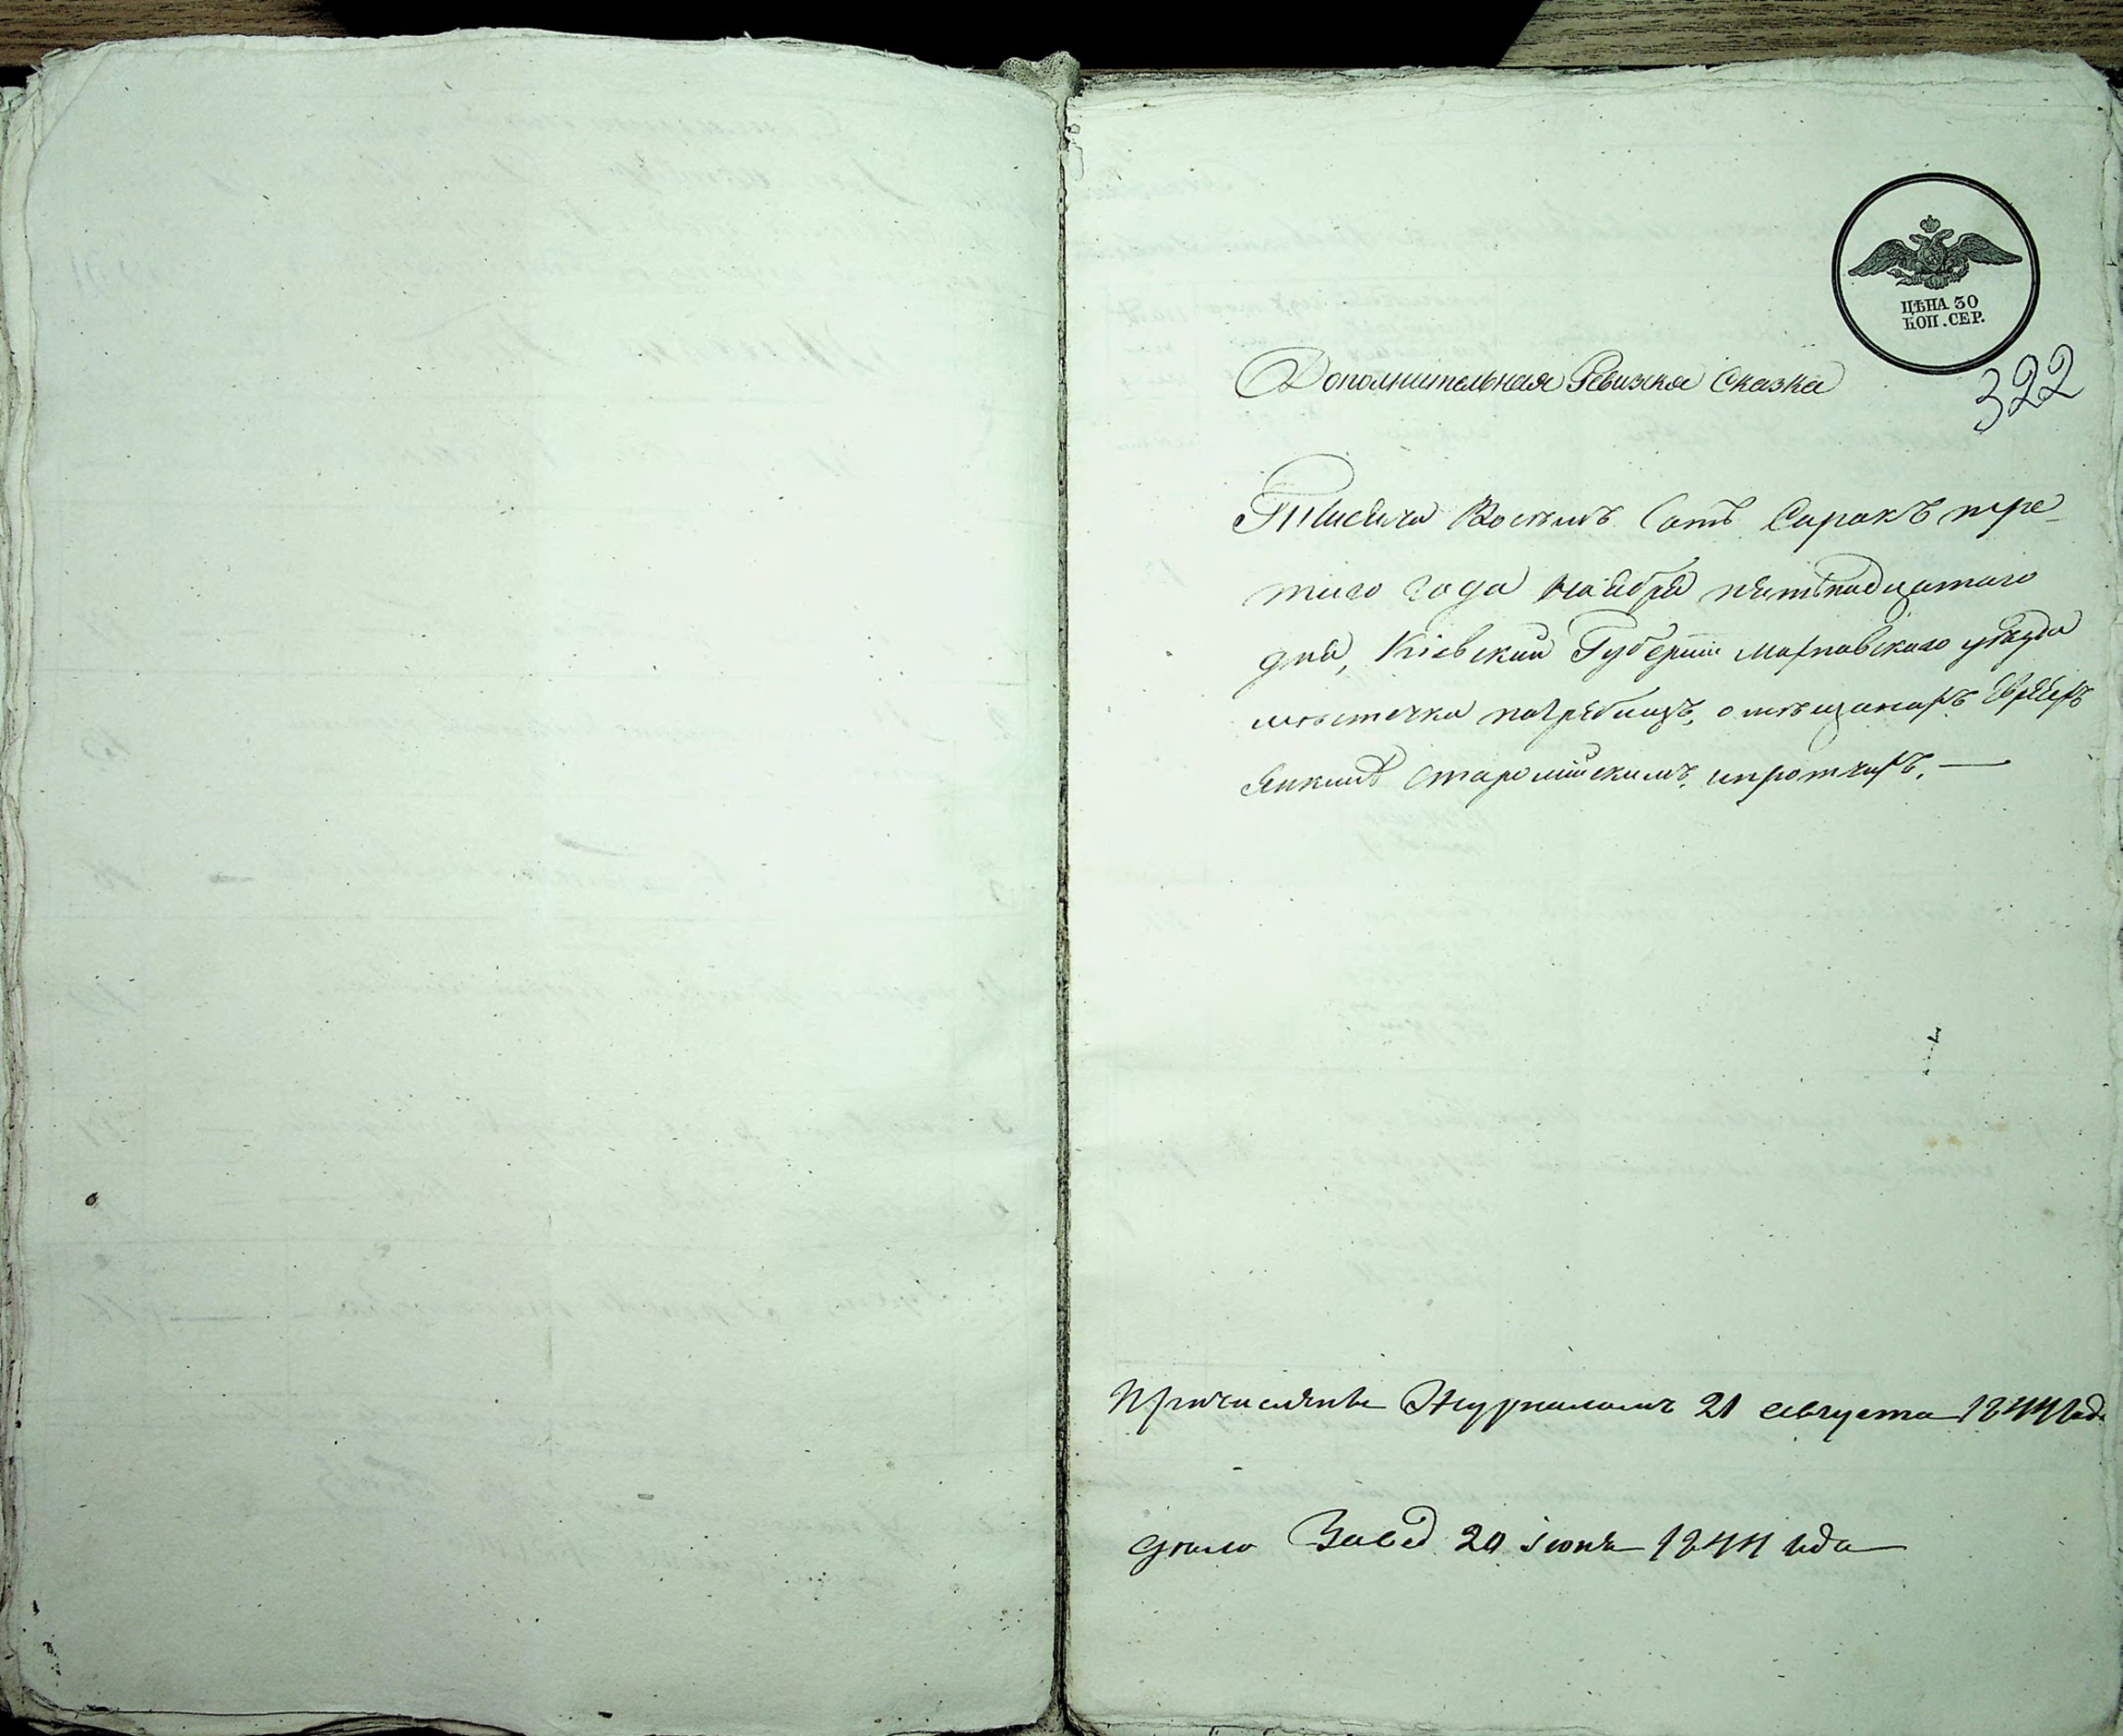 ЦѢНА 30
КОП. СЕР.
322
Дополнительная Ревизкая Сказка
Тысяча Восемъ Сотъ Сорокъ тре
тиго года ноября пятьнадцатаго
дня, Кіевской Губерніи уѣзда
мѣстечка погребищъ, о мѣщанахъ Евреяхъ
Янкелѣ Старомійскимъ, ипротчихъ. —
Причислены Журналомъ 21 августа 1844 года
дело Завед 20 іюня 1844 года